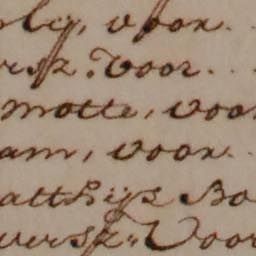 voor . .
rsz. Voor . . .
motte, voor
am, voor . .
atthijs Bo
uersz„ Voor